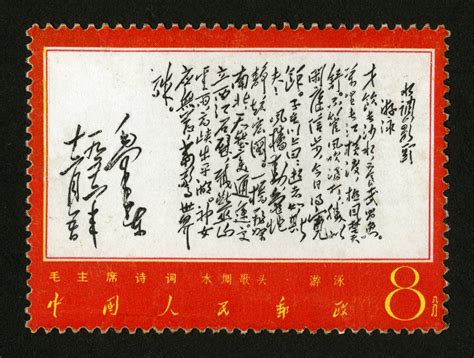 水调歌头
游泳
才饮长沙水又食武昌鱼
万里长江横渡极目楚天
舒不管风吹浪打胜似
闲庭信步今日得宽
馀子在川上曰逝者如斯
夫风樯动龟蛇
静起宏图一桥飞架
南北天堑变通途更
立西江石壁截断巫山
云雨高峡出平湖神女
应无恙当惊世界
殊
毛泽东
一九五六年
十二月五日
毛主席诗词 水调歌头 游泳
中国人民邮政 8分